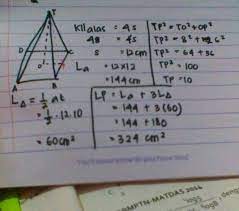 T
D
C
O
A
B
Kll alas : 4s
48 = 4s
s = 12cm
La = 12x12
= 144cm
TP² = TO² + OP²
TP² = 8² + 6²
TP² = 64 + 36
TP² = 100
TP = 10
L△ = 1/2 at
= 1/2 . 12.10
= 60cm²
LP = La + 3L△
= 144 + 3(60)
= 144 + 180
= 324 cm²
MPTN-MATDAS 2016